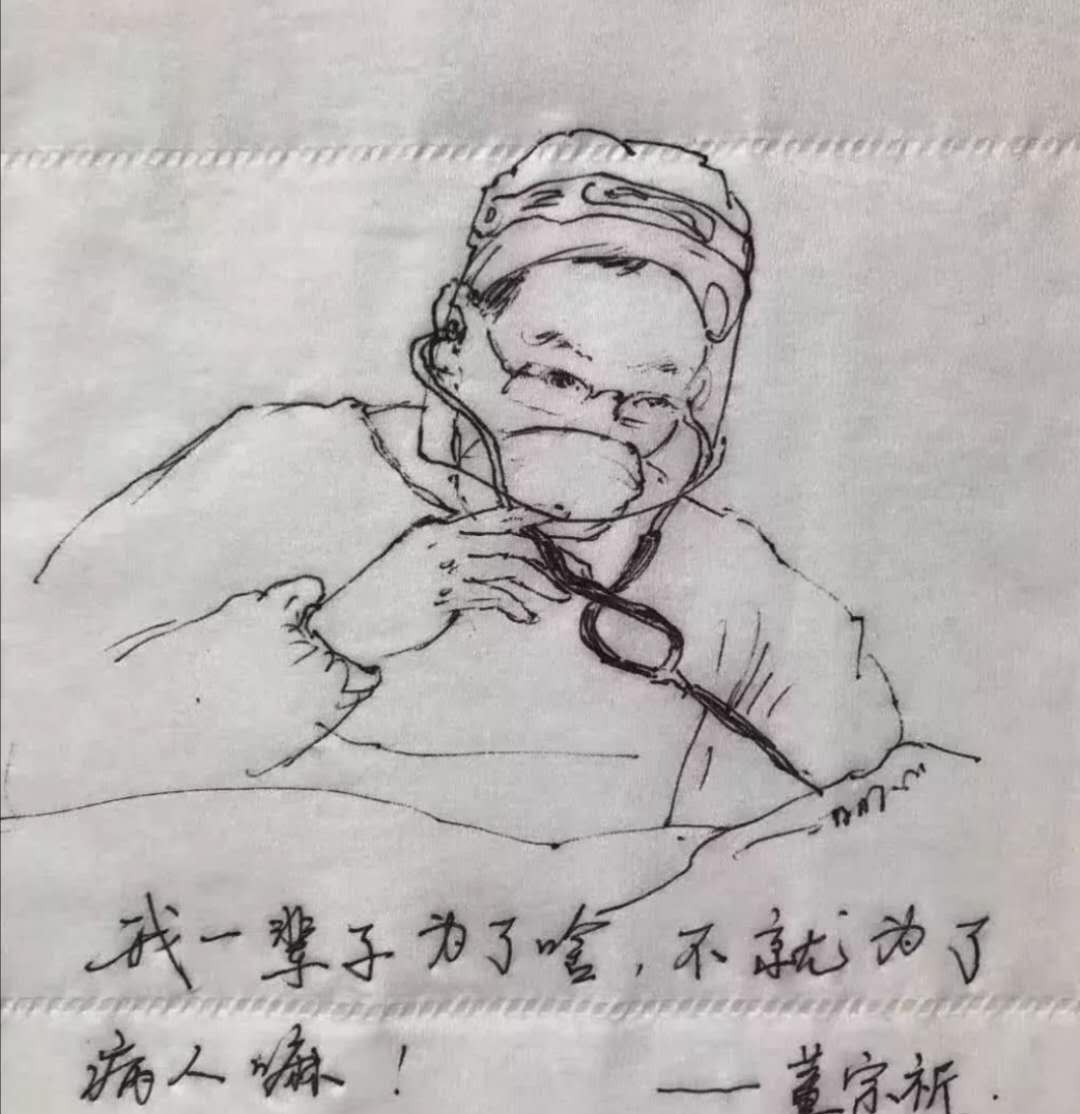 我一辈子为了啥，不就为了
病人嘛！ ——董宗祈.